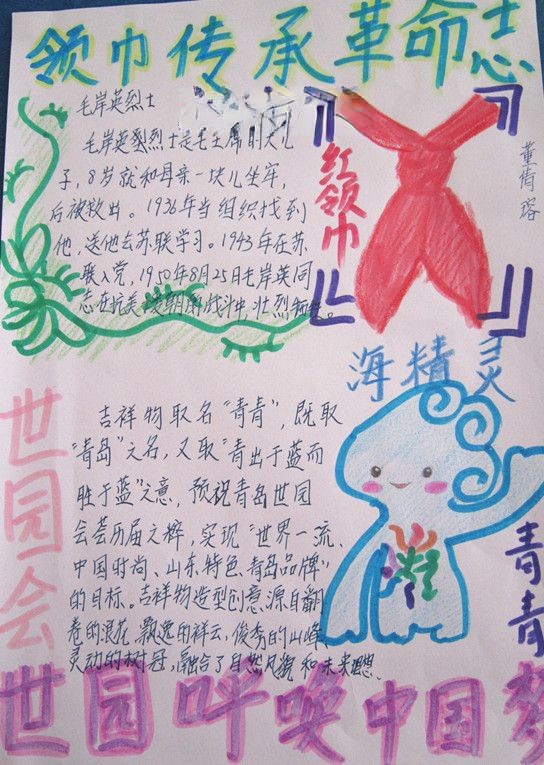 领巾传承革命志
毛岸英烈士
毛岸英烈士是毛主席的大儿
子,8岁就和母亲一块儿坐牢,
后被救出。1936年当组织找到
他,送他去苏联学习。1943年在苏
联入党,1950年8月25日毛岸英同
志在抗美援朝的战斗中,壮烈牺牲。
红领巾
董倩瑢
海精灵
世园会
吉祥物取名“青青”,既取
“青岛”之名,又取“青出于蓝而
胜于蓝”之意,预祝青岛世园
会荟历届之粹,实现“世界一流、
中国时尚、山东特色、青岛品牌”
的目标。吉祥物造型创意源自翻
卷的浪花、飘逸的祥云、俊秀的山峰、
灵动的树冠,融合了自然风貌和未来理想.
青青
世园呼唤中国梦